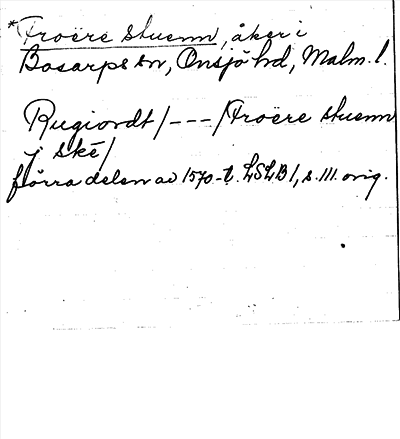 *Froëre stuenn, åker i
Bosarps sn, Onsjö hd, Malm. l.
Rugiordt /---/ Froëre stuenn
j skē/
förra delen av 1570-t. LSLB 1, s. 111. orig.